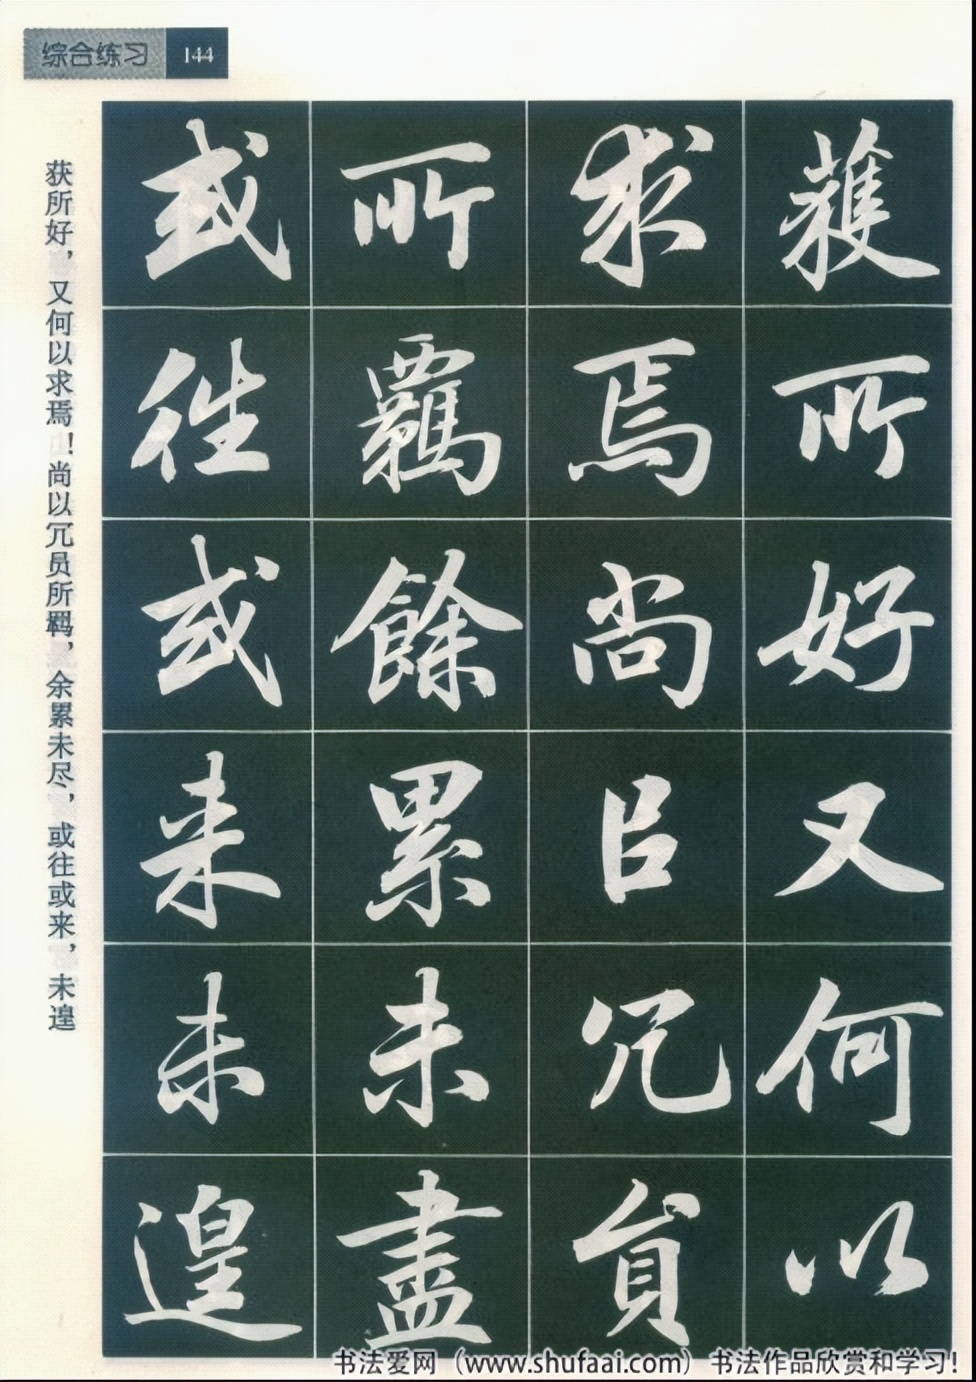 综合练习 144
獲所好又何以
求焉尚㠯冗員
所羈餘累未盡
或往或来未遑
获所好，又何以求焉！尚以冗员所羁，余累未尽，或往或来，未遑
书法爱网（www.shufaai.com）书法作品欣赏和学习！